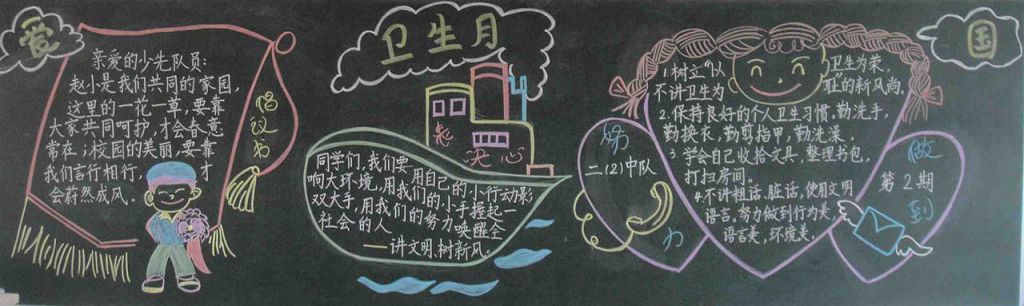 爱
卫生月
国
亲爱的少先队员:
赵小是我们共同的家园,
这里的一花一草,要靠
大家共同呵护,才会春意
常在;校园的美丽,要靠
我们言行相行,才
会蔚然成风。
倡议书
决心
同学们,我们要用自己的小行动影
响大环境,用我们的小手握起一
双大手,用我们的努力唤醒全
社会的人
——讲文明,树新风。
努
力
二(2)中队
1.树立“以卫生为荣
不讲卫生为耻”的新风尚。
2.保持良好的个人卫生习惯,勤洗手,
勤换衣、勤剪指甲,勤洗澡。
3.学会自己收拾文具,整理书包,
打扫房间。
4.不讲粗话、脏话,使用文明
语言,努力做到行为美,
语言美,环境美。
做
到
第2期